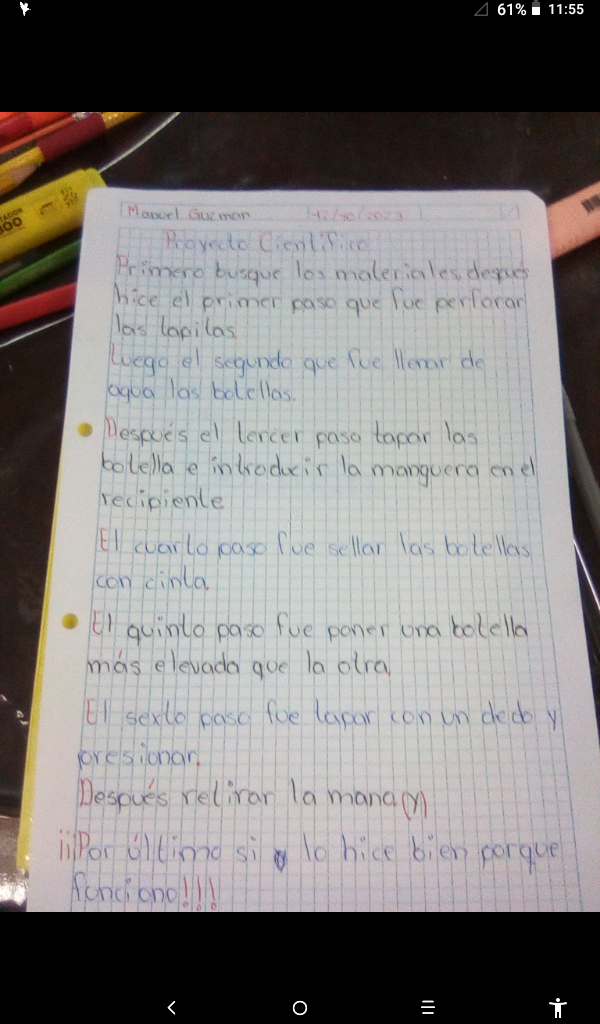 61% 11:55
Manuel Guzman 12/10/2023
Proyecto Cientifico
Primero busque los materiales, después
hice el primer paso que fue perforar
las tapitas
Luego el segundo que fue llenar de
agua las botellas.
Después el tercer paso tapar las
botella e introducir la manguera en el
recipiente
El cuarto paso fue sellar las botellas
con cinta.
El quinto paso fue poner una botella
más elevada que la otra.
El sexto paso fue tapar con un dedo y
presionar.
Después retirar la mano (y)
¡¡¡Por último si lo hice bien porque
funciono!!!